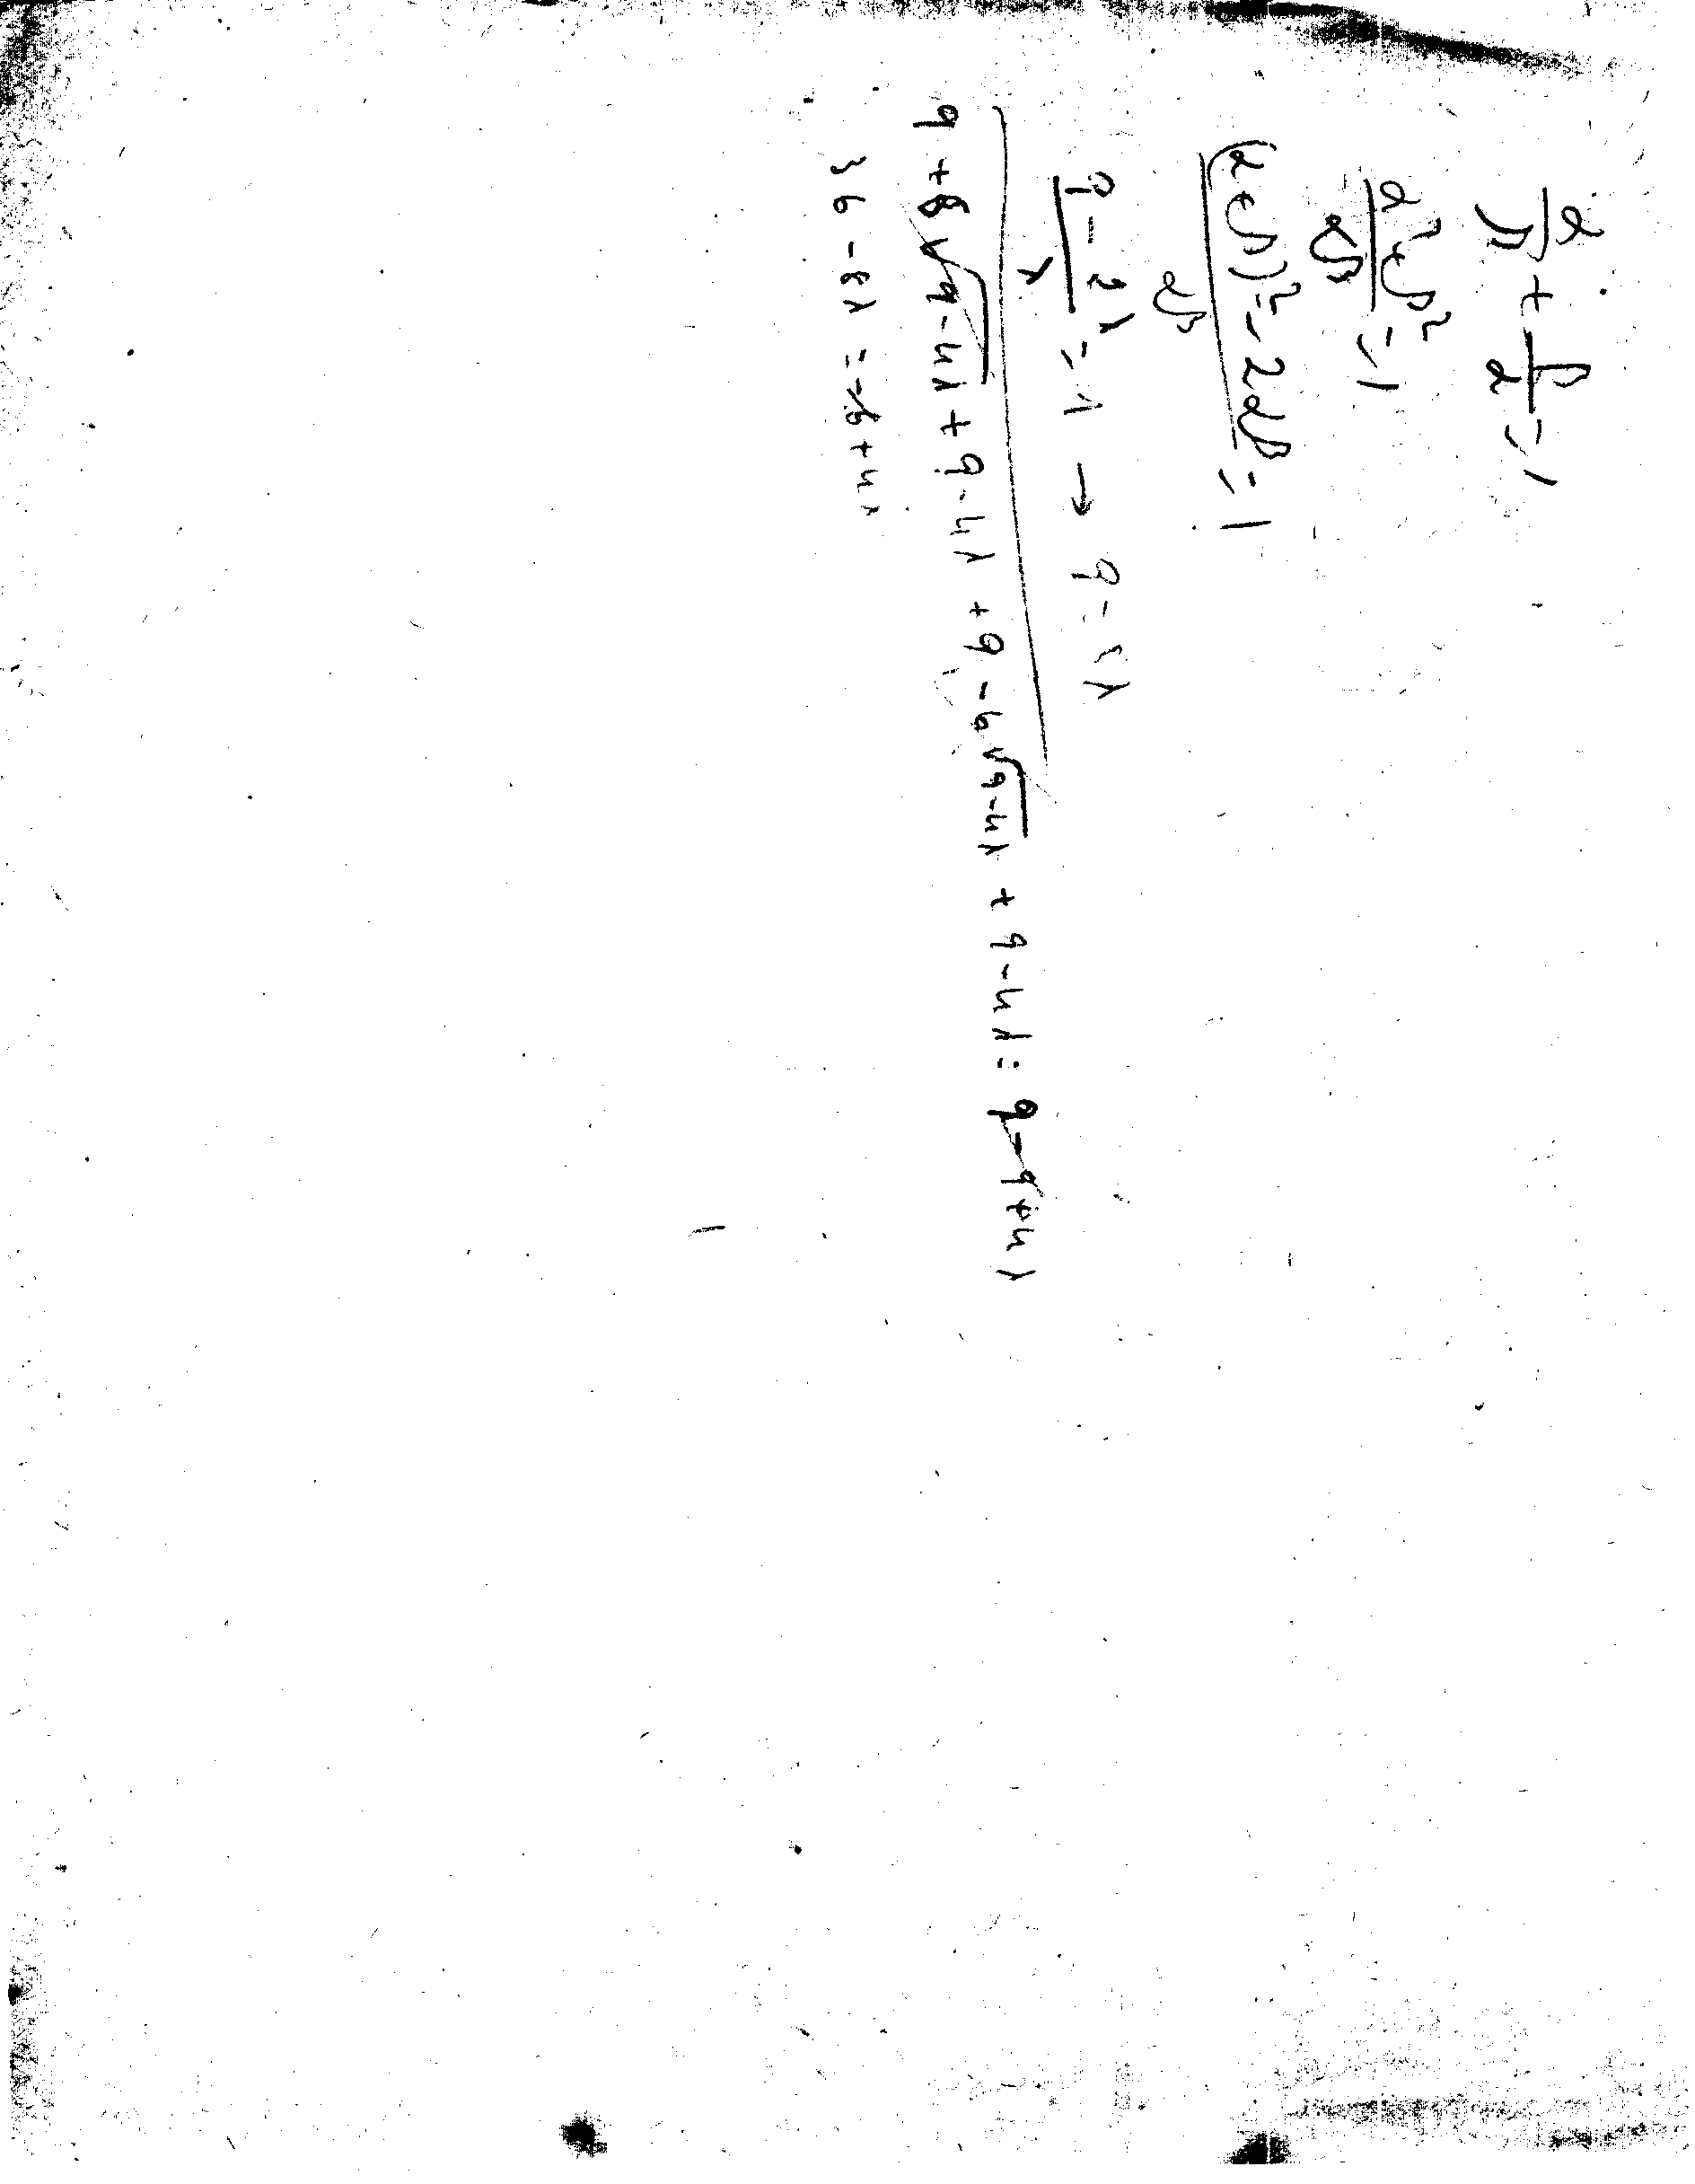 α/β + β/α = 1
α²+β²/αβ = 1
(α+β)² - 2αβ/αβ = 1
9 - 2λ/λ = 1 → 9 = 3λ
9 + 6√9-4λ + 9-4λ + 9 - 6√9-4λ + 9-4λ = 9-9+4λ
36 - 8λ = +4λ